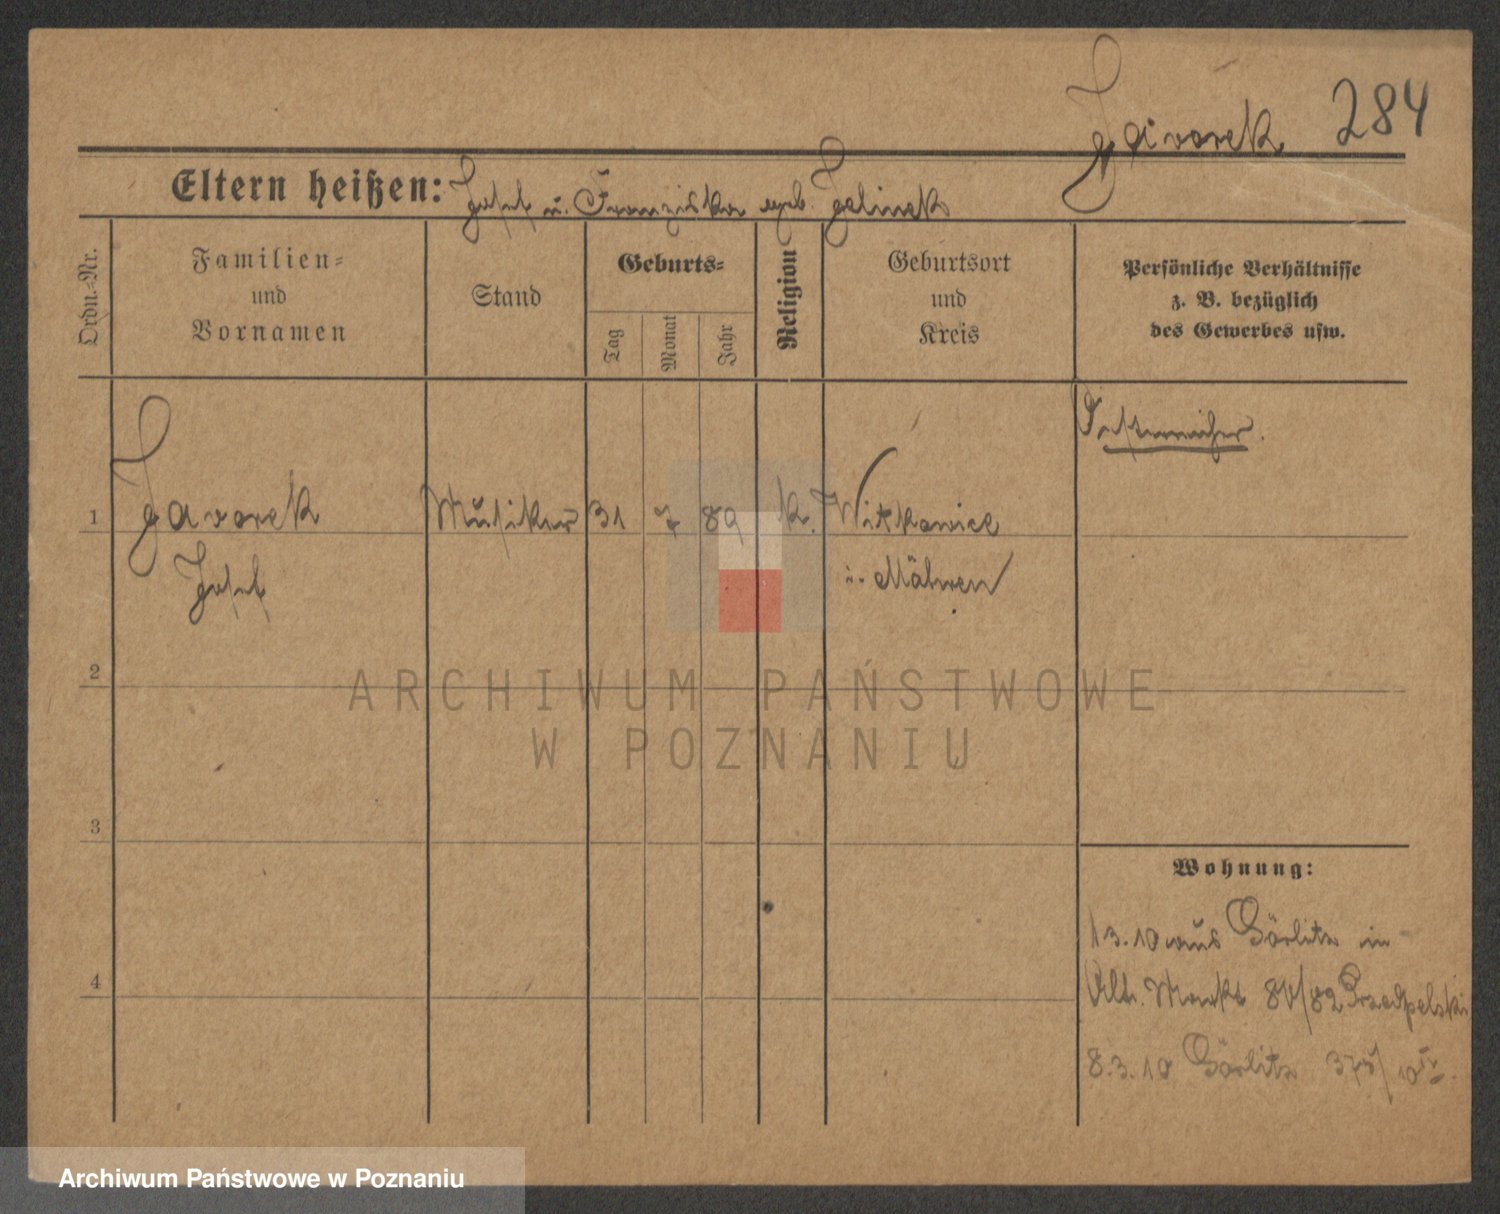 Javorek 284
Eltern heißen: Josef u. Franziska geb. Jelinek
Ordn.-Nr.
Familien-
und
Vornamen
Stand
Geburts-
Tag
Monat
Jahr
Religion
Geburtsort
und
Kreis
Persönliche Verhältnisse
z. B. bezüglich
des Gewerbes usw.
Österreicher.
1 Javorek Musiker 31 7 89 k. Witkowice
Josef i. Mähren
2
3
4
Wohnung:
13.10 aus Görlitz in
Alt. Markt 81/82 Przedpelski
8.3.10 Görlitz
ARCHIWUM PAŃSTWOWE
W POZNANIU
Archiwum Państwowe w Poznaniu